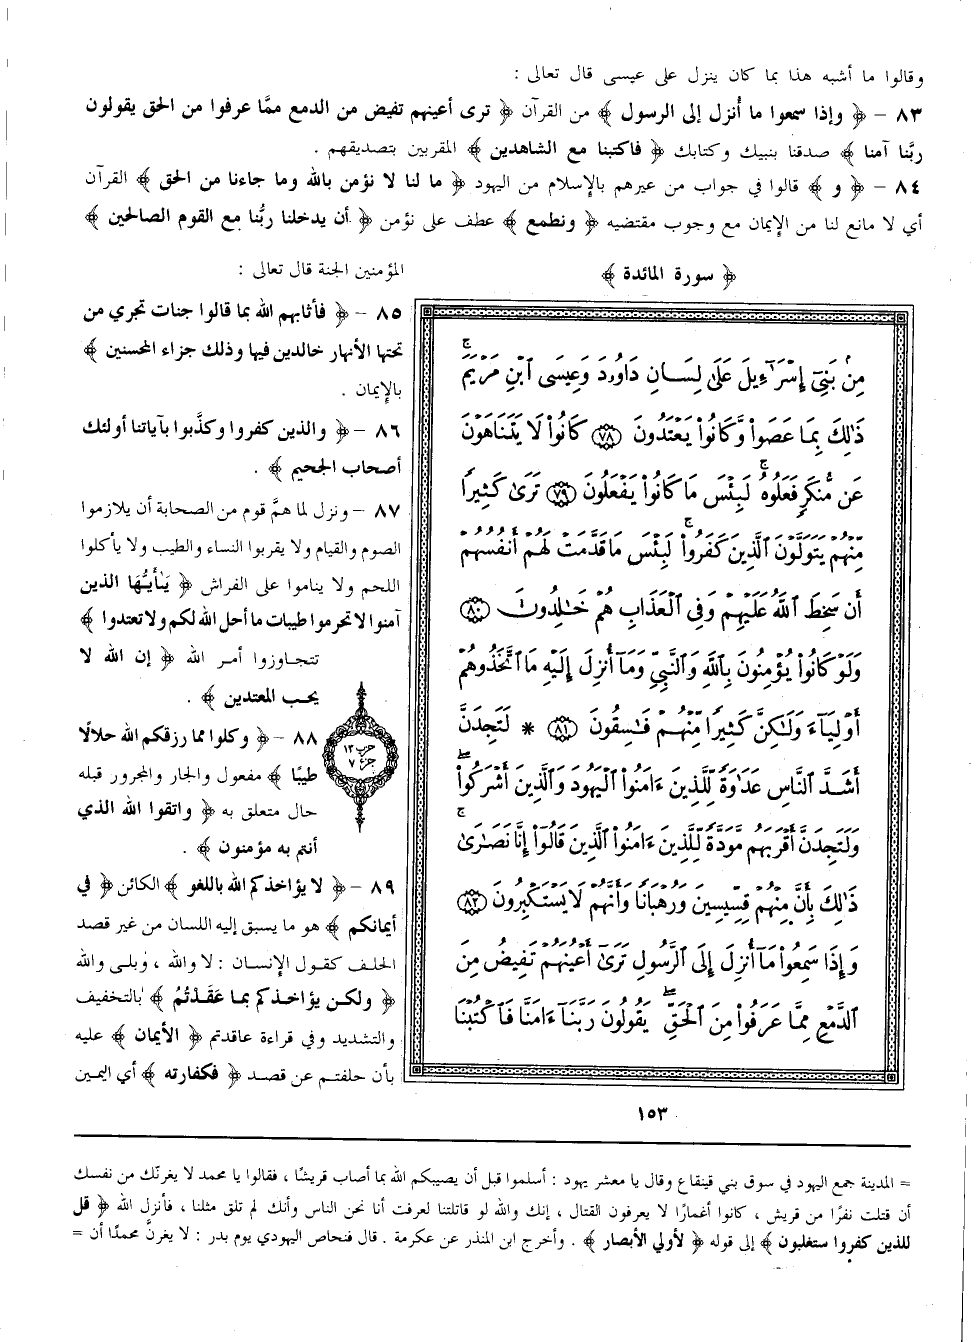 وقالوا ما أشبه هذا بما كان ينزل على عيسى قال تعالى :
٨٣ – ﴿ وإذا سمعوا ما أُنزل إلى الرسول ﴾ من القرآن ﴿ ترى أعينهم تفيض من الدمع ممَّا عرفوا من الحق يقولون
ربَّنا آمنا ﴾ صدقنا بنبيك وكتابك ﴿ فاكتبنا مع الشاهدين ﴾ المقربين بتصديقهم .
٨٤ – ﴿ و ﴾ قالوا في جواب من عيرهم بالإسلام من اليهود ﴿ ما لنا لا نؤمن بالله وما جاءنا من الحق ﴾ القرآن
أي لا مانع لنا من الإيمان مع وجوب مقتضيه ﴿ ونطمع ﴾ عطف على نؤمن ﴿ أن يدخلنا ربُّنا مع القوم الصالحين ﴾
المؤمنين الجنة قال تعالى :
٨٥ – ﴿ فأثابهم الله بما قالوا جنات تجري من
تحتها الأنهار خالدين فيها وذلك جزاء المحسنين ﴾
بالإيمان .
٨٦ – ﴿ والذين كفروا وكذَّبوا بآياتنا أولئك
أصحاب الجحيم ﴾ .
٨٧ – ونزل لما همَّ قوم من الصحابة أن يلازموا
الصوم والقيام ولا يقربوا النساء والطيب ولا يأكلوا
اللحم ولا يناموا على الفراش ﴿ يَـٰأيُّهَا الذين
آمنوا لا تحرموا طيبات ما أحل الله لكم ولا تعتدوا ﴾
تتجاوزوا أمر الله ﴿ إن الله لا
يحب المعتدين ﴾ .
٨٨ – ﴿ وكلوا مما رزقكم الله حلالًا
طيبًا ﴾ مفعول والجار والمجرور قبله
حال متعلق به ﴿ واتقوا الله الذي
أنتم به مؤمنون ﴾ .
٨٩ – ﴿ لا يؤاخذكم الله باللغو ﴾ الكائن ﴿ في
أيمانكم ﴾ هو ما يسبق إليه اللسان من غير قصد
الحلف كقول الإنسان : لا والله ، وبلى والله
﴿ ولكن يؤاخذكم بما عَقَدْتُمُ ﴾ بالتخفيف
والتشديد وفي قراءة عاقدتم ﴿ الأيمان ﴾ عليه
بأن حلفتم عن قصد ﴿ فكفارته ﴾ أي اليمين
حزب ١٣
جزء ٧
﴿ سورة المائدة ﴾
مِنۢ بَنِىٓ إِسْرَٰٓءِيلَ عَلَىٰ لِسَانِ دَاوُۥدَ وَعِيسَى ٱبْنِ مَرْيَمَ ۚ
ذَٰلِكَ بِمَا عَصَوا۟ وَّكَانُوا۟ يَعْتَدُونَ ٧٨ كَانُوا۟ لَا يَتَنَاهَوْنَ
عَن مُّنكَرٍ فَعَلُوهُ ۚ لَبِئْسَ مَا كَانُوا۟ يَفْعَلُونَ ٧٩ تَرَىٰ كَثِيرًا
مِّنْهُمْ يَتَوَلَّوْنَ ٱلَّذِينَ كَفَرُوا۟ ۚ لَبِئْسَ مَا قَدَّمَتْ لَهُمْ أَنفُسُهُمْ
أَن سَخِطَ ٱللَّهُ عَلَيْهِمْ وَفِى ٱلْعَذَابِ هُمْ خَـٰلِدُونَ ٨٠
وَلَوْ كَانُوا۟ يُؤْمِنُونَ بِٱللَّهِ وَٱلنَّبِىِّ وَمَآ أُنزِلَ إِلَيْهِ مَا ٱتَّخَذُوهُمْ
أَوْلِيَآءَ وَلَـٰكِنَّ كَثِيرًا مِّنْهُمْ فَـٰسِقُونَ ٨١ * لَتَجِدَنَّ
أَشَدَّ ٱلنَّاسِ عَدَٰوَةً لِّلَّذِينَ ءَامَنُوا۟ ٱلْيَهُودَ وَٱلَّذِينَ أَشْرَكُوا۟ ۖ
وَلَتَجِدَنَّ أَقْرَبَهُم مَّوَدَّةً لِّلَّذِينَ ءَامَنُوا۟ ٱلَّذِينَ قَالُوٓا۟ إِنَّا نَصَـٰرَىٰ ۚ
ذَٰلِكَ بِأَنَّ مِنْهُمْ قِسِّيسِينَ وَرُهْبَانًا وَأَنَّهُمْ لَا يَسْتَكْبِرُونَ ٨٢
وَإِذَا سَمِعُوا۟ مَآ أُنزِلَ إِلَى ٱلرَّسُولِ تَرَىٰٓ أَعْيُنَهُمْ تَفِيضُ مِنَ
ٱلدَّمْعِ مِمَّا عَرَفُوا۟ مِنَ ٱلْحَقِّ ۖ يَقُولُونَ رَبَّنَآ ءَامَنَّا فَٱكْتُبْنَا
١٥٣
= المدينة جمع اليهود في سوق بني قينقاع وقال يا معشر يهود : أسلموا قبل أن يصيبكم الله بما أصاب قريشًا ، فقالوا يا محمد لا يغرنّك من نفسك
أن قتلت نفرًا من قريش ، كانوا أغمارًا لا يعرفون القتال ، إنك والله لو قاتلتنا لعرفت أنا نحن الناس وأنك لم تلق مثلنا ، فأنزل الله ﴿ قل
للذين كفروا ستغلبون ﴾ إلى قوله ﴿ لأولي الأبصار ﴾ . وأخرج ابن المنذر عن عكرمة . قال فنحاص اليهودي يوم بدر : لا يغرنَّ محمدًا أن =